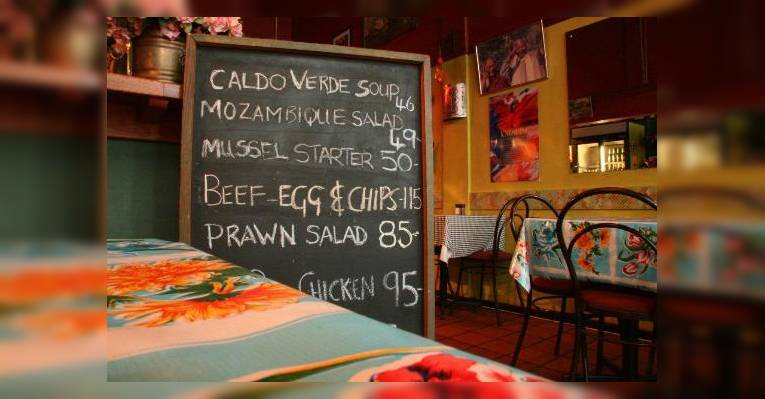 CALDO VERDE SOUP 46
MOZAMBIQUE SALAD
49-
MUSSEL STARTER 50-
BEEF-EGG & CHIPS-115
PRAWN SALAD 85-
CHICKEN 95-